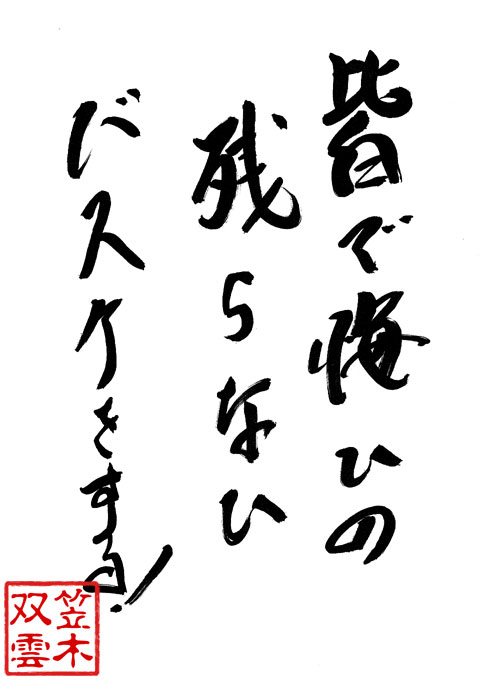 皆で悔ひの
残らなひ
バスケをする!
笠木
双雲